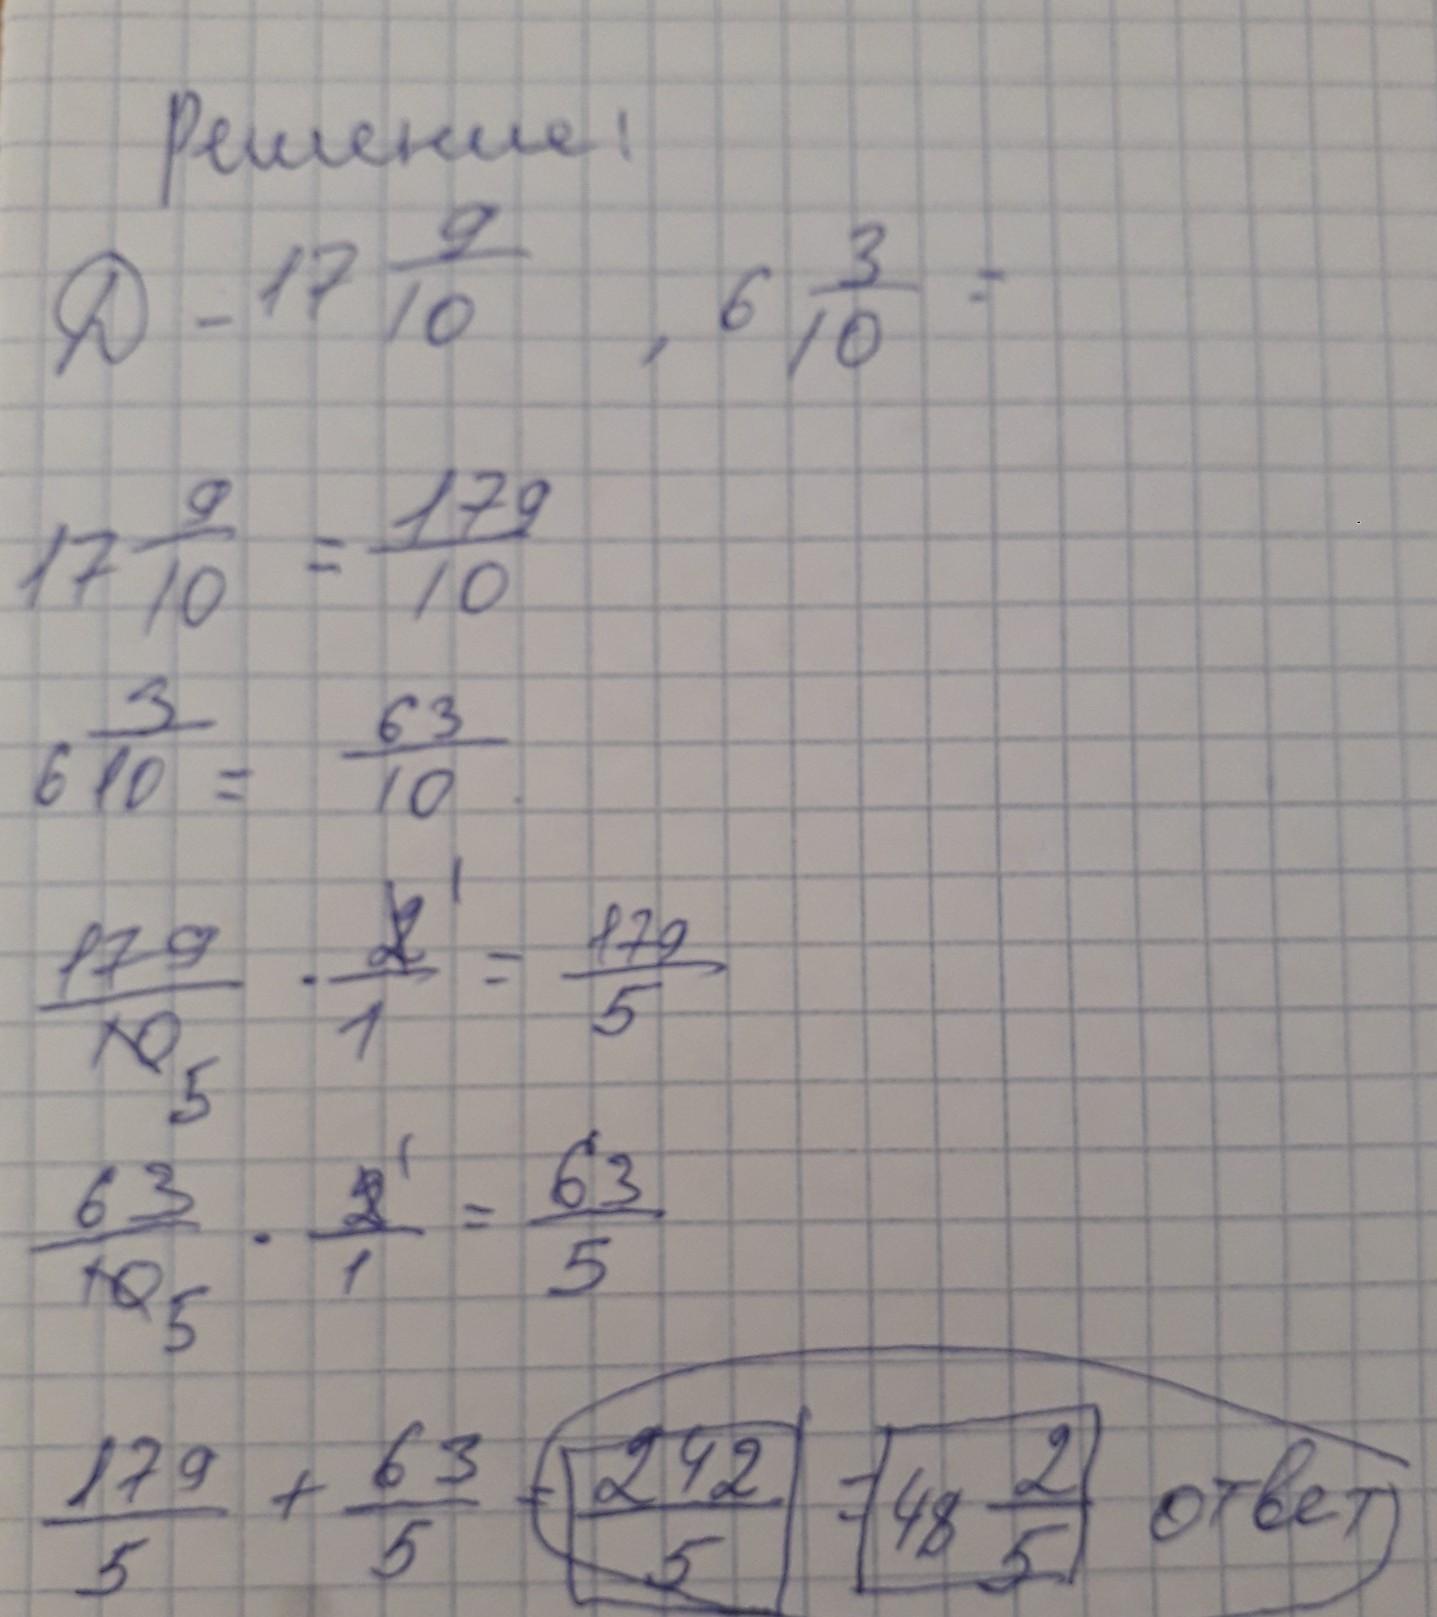 Решение:
Д - 17 9/10 , 6 3/10 =
17 9/10 = 179/10
6 3/10 = 63/10
179/10 5 · 2/1 1 = 179/5
63/10 5 · 2/1 1 = 63/5
179/5 + 63/5 = 242/5 = 48 2/5 ответ